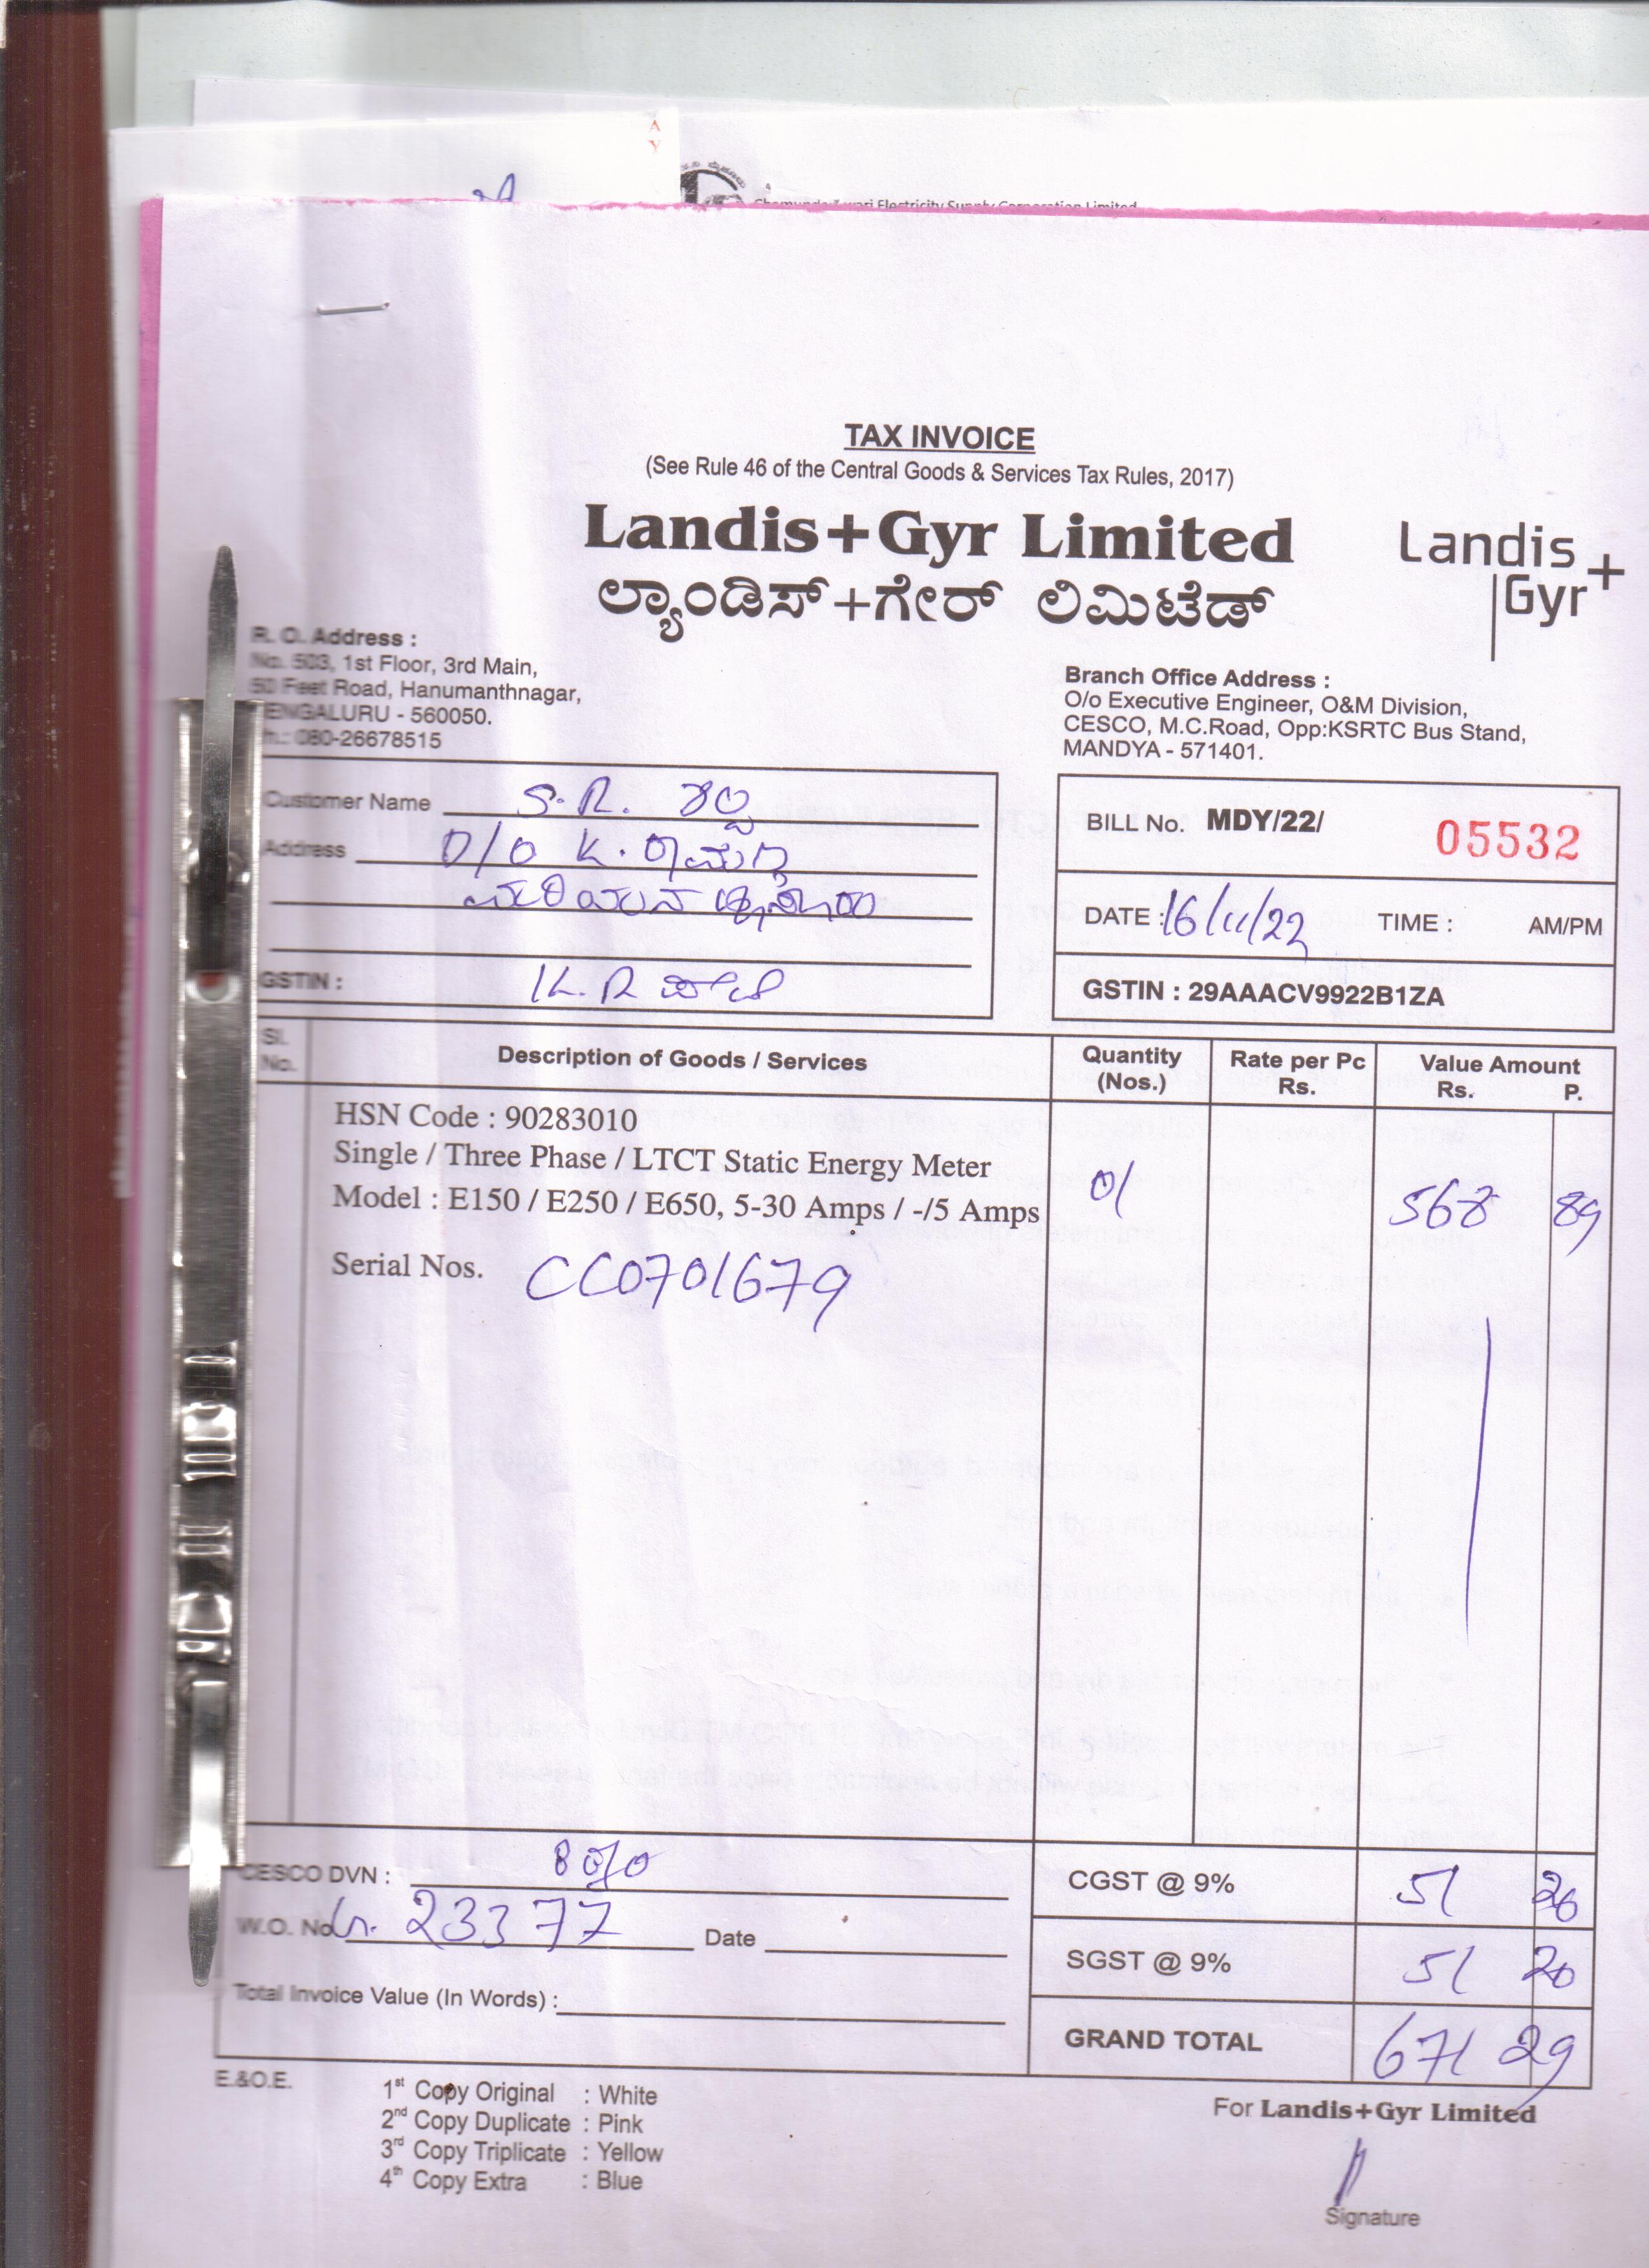 A
Y
Electricity Supply Corporation Limited
TAX INVOICE
(See Rule 46 of the Central Goods & Services Tax Rules, 2017)
Landis+Gyr Limited
ಲ್ಯಾಂಡಿಸ್+ಗೇರ್ ಲಿಮಿಟೆಡ್
Landis+
Gyr
R. O. Address :
No. 503, 1st Floor, 3rd Main,
50 Feet Road, Hanumanthnagar,
BENGALURU - 560050.
Ph.: 080-26678515
Branch Office Address :
O/o Executive Engineer, O&M Division,
CESCO, M.C.Road, Opp:KSRTC Bus Stand,
MANDYA - 571401.
Customer Name S.R.
Address D/O K.
GSTIN : K.R
BILL No. MDY/22/ 05532
DATE : 16/11/22 TIME : AM/PM
GSTIN : 29AAACV9922B1ZA
Sl. No. Description of Goods / Services Quantity (Nos.) Rate per Pc Rs. Value Amount Rs. P.
HSN Code : 90283010
Single / Three Phase / LTCT Static Energy Meter
Model : E150 / E250 / E650, 5-30 Amps / -/5 Amps 01 568 89
Serial Nos. CC0701679
CESCO DVN :
W.O. No. 23377 Date
Total Invoice Value (In Words) :
CGST @ 9% 51 20
SGST @ 9% 51 20
GRAND TOTAL 671 29
E.&O.E.
1st Copy Original : White
2nd Copy Duplicate : Pink
3rd Copy Triplicate : Yellow
4th Copy Extra : Blue
For Landis+Gyr Limited
Signature